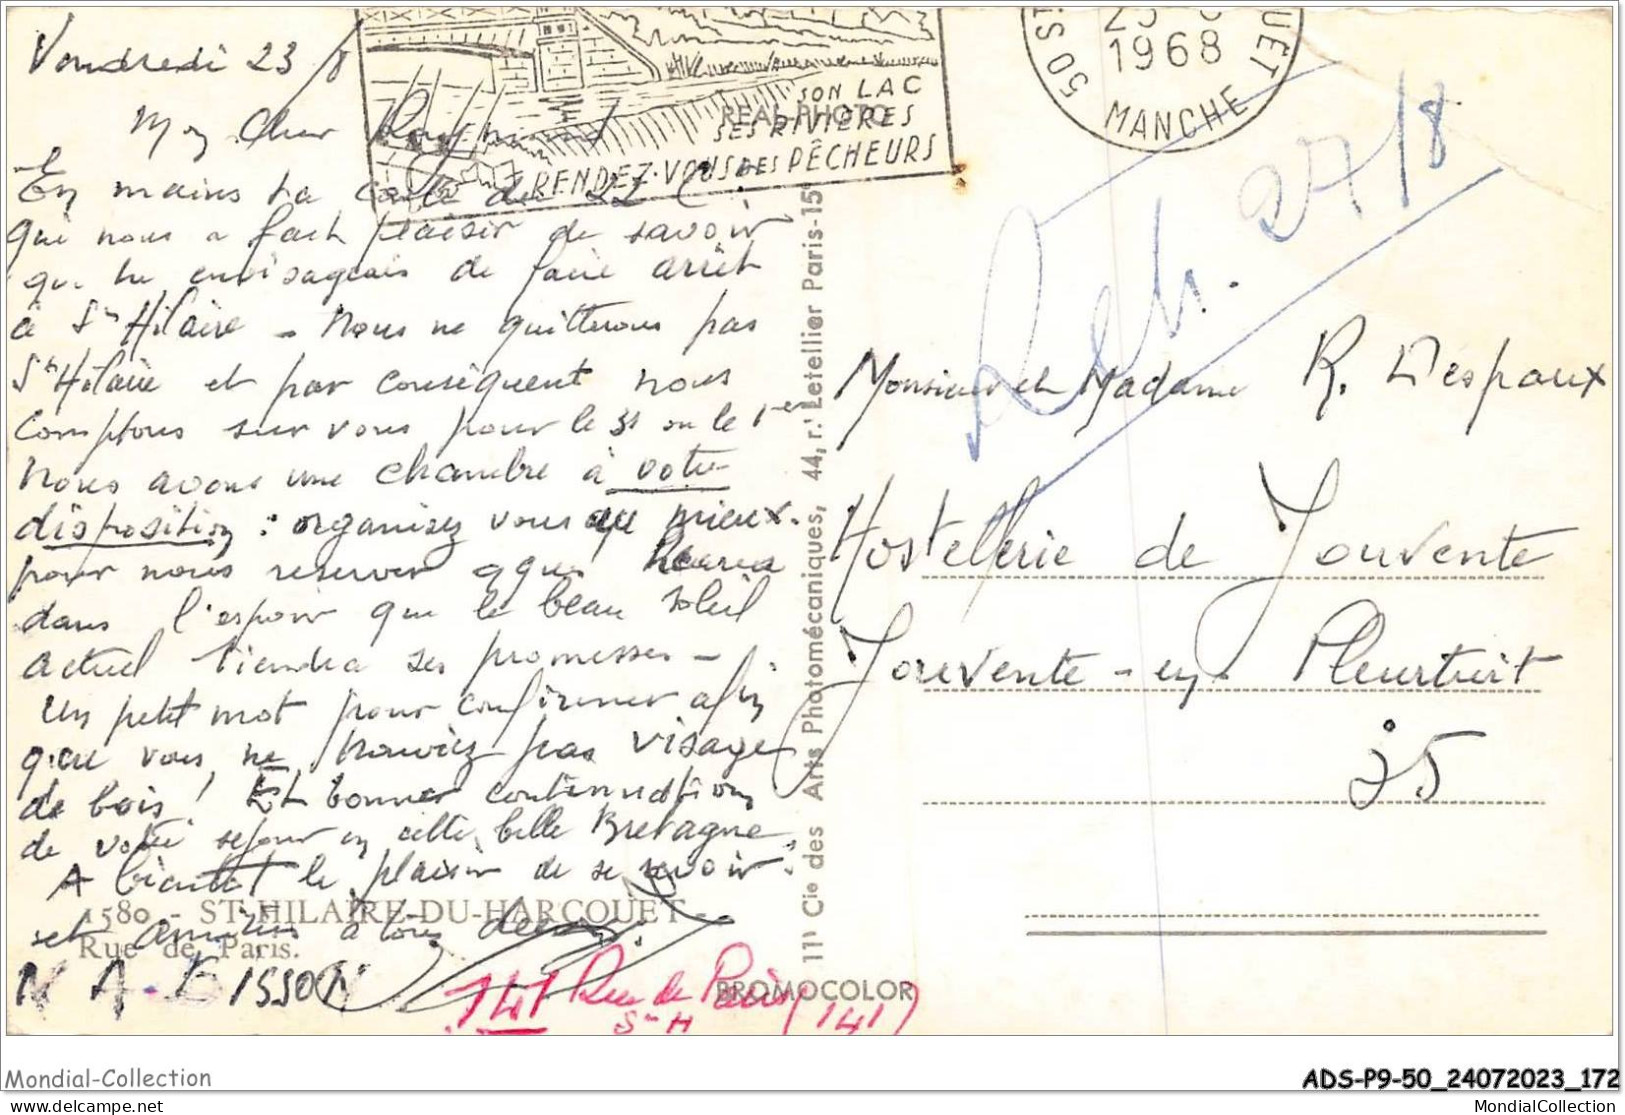 Vendredi 23/8
Mon Cher Raymond
En mains ta carte du 22 C
qui nous a fait plaisir de savoir
que tu envisageais de faire arrêt
à St Hilaire - Nous ne quitterons pas
St Hilaire et par conséquent nous
comptons sur vous pour le 31 ou le 1er
Nous avons une chambre à votre
disposition : organisez vous au mieux.
pour nous réserver qques heures
dans l'espoir que le beau soleil
actuel tiendra ses promesses -
Un petit mot pour confirmer afin
que vous ne trouviez pas visage
de bois ! Et bonne continuation
de votre séjour en cette belle Bretagne
A bientôt le plaisir de se revoir.
et amitiés à tous deux
1580 - ST-HILAIRE-DU-HARCOUET -
Rue de Paris.
M A. BISSON
141 Rue de Paris (141)
St H
SON LAC
SES RIVIÈRES
RENDEZ-VOUS DES PÊCHEURS
REAL-PHOTO
50 ST
1968
MANCHE
11, Cie des Arts Photomécaniques, 44, r. Letellier Paris-15
PROMOCOLOR
Rep. 27/8
Monsieur et Madame R. Despaux
Hostellerie de Jouvente
Jouvente-en-Pleurtuit
35
Mondial-Collection
ADS-P9-50_24072023_172
delcampe.net
MondialCollection